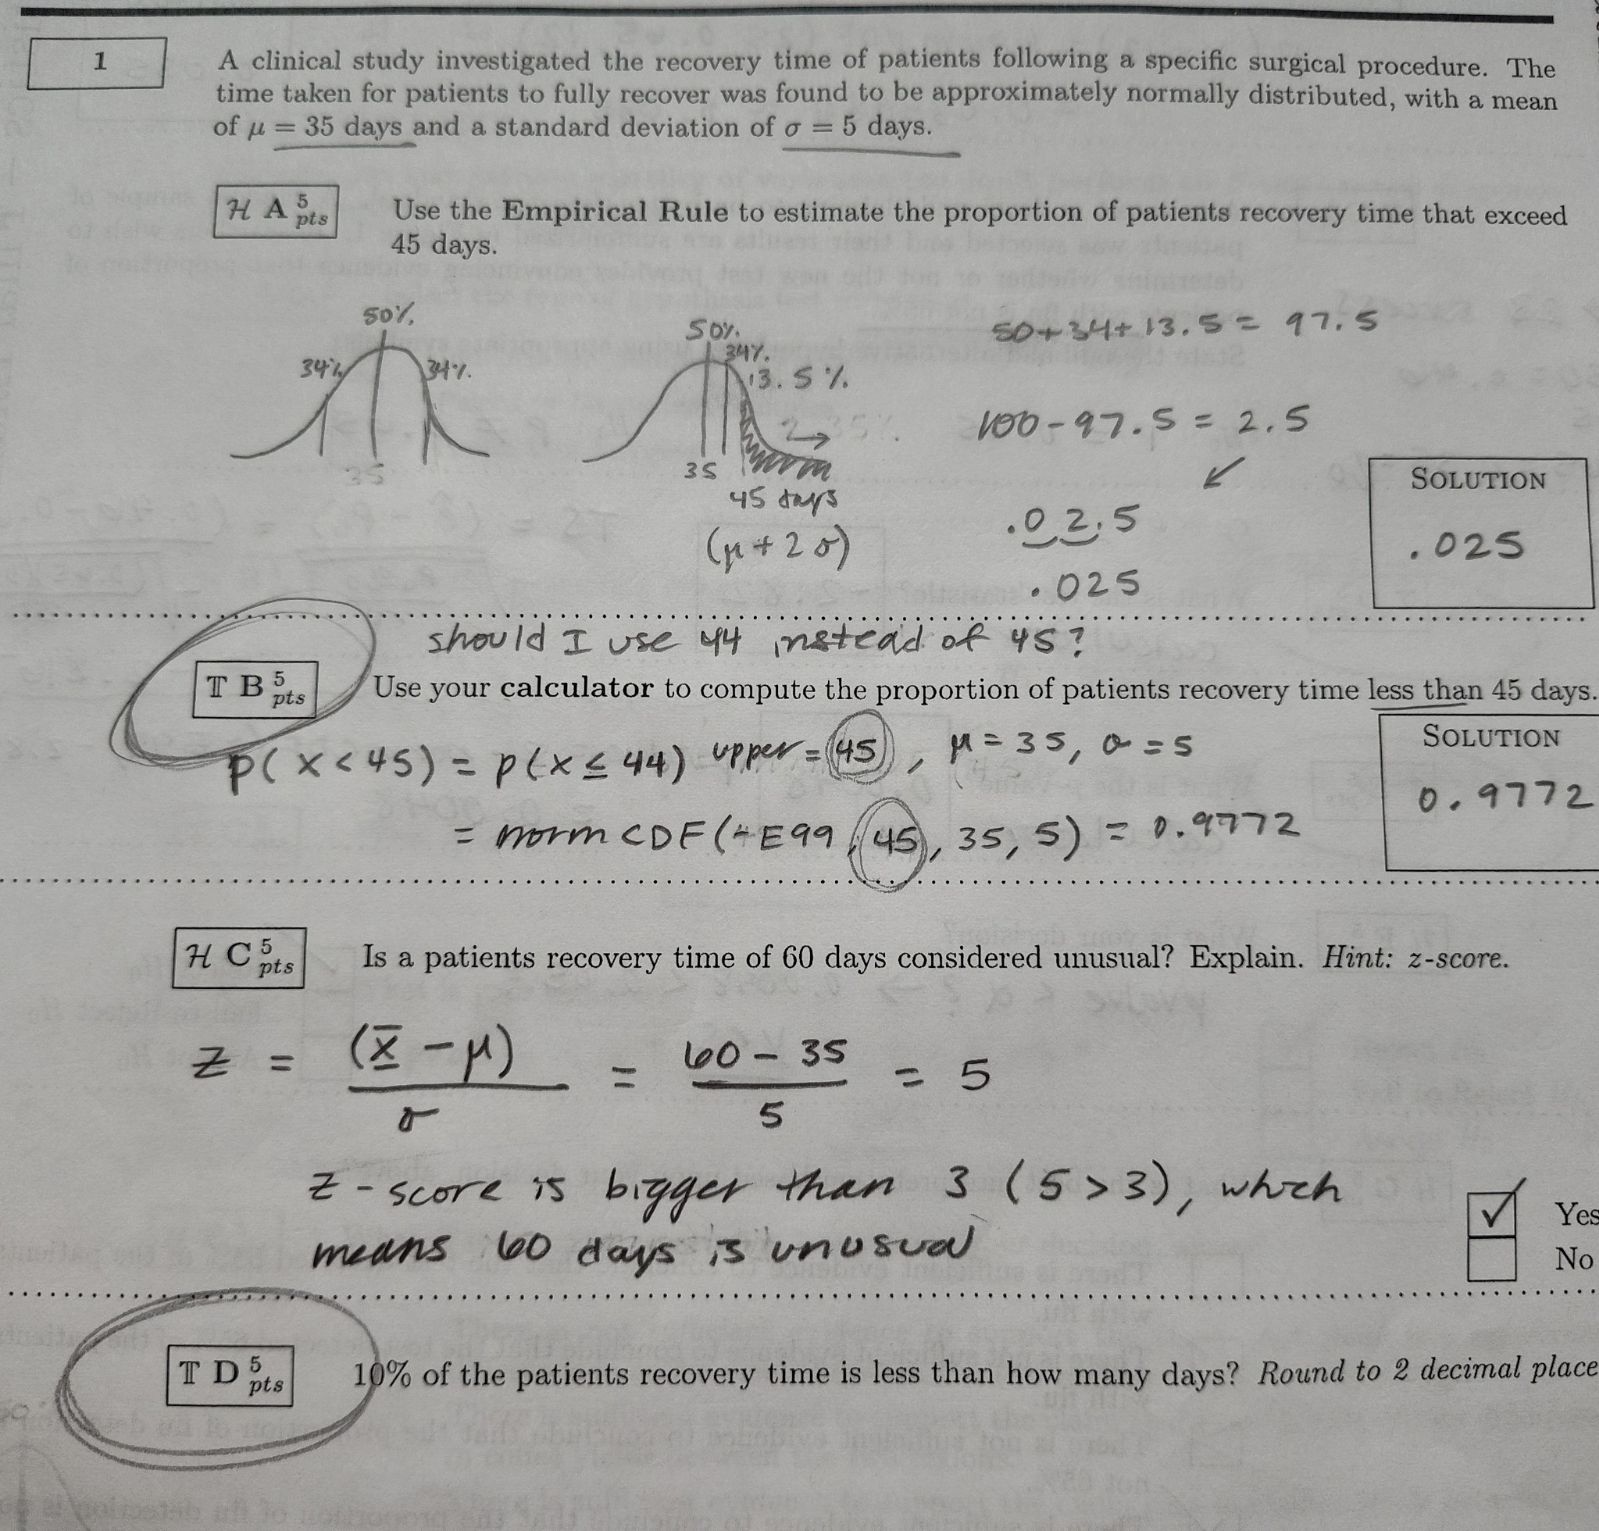 1
A clinical study investigated the recovery time of patients following a specific surgical procedure. The
time taken for patients to fully recover was found to be approximately normally distributed, with a mean
of μ = 35 days and a standard deviation of σ = 5 days.
ℋ A 5 pts
Use the Empirical Rule to estimate the proportion of patients recovery time that exceed
45 days.
50%
34% 34%
35
50%
34%
13.5%
35
45 days
(μ + 2σ)
50+34+13.5 = 97.5
100-97.5 = 2.5
.02.5
.025
SOLUTION
.025
should I use 44 instead of 45?
𝕋 B 5 pts
Use your calculator to compute the proportion of patients recovery time less than 45 days.
p(x<45) = p(x ≤ 44) upper = 45, μ = 35, σ = 5
= normCDF(-E99, 45, 35, 5) = 0.9772
SOLUTION
0.9772
ℋ C 5 pts
Is a patients recovery time of 60 days considered unusual? Explain. Hint: z-score.
z = (x̄ - μ) / σ = 60 - 35 / 5 = 5
z-score is bigger than 3 (5>3), which
means 60 days is unusual
✓ Yes
No
𝕋 D 5 pts
10% of the patients recovery time is less than how many days? Round to 2 decimal place